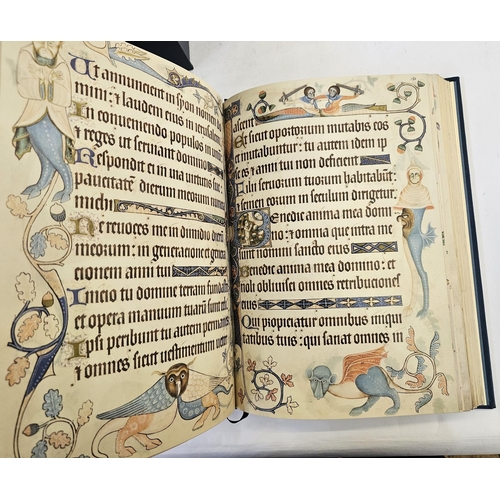 Ut annuncient in syon nomen do
mini: & laudem eius in ierusalem
In conveniendo populos in unum
& reges ut serviant domino
Respondit ei in via virtutis sue
paucitatem dierum meorum nuncia
michi
Ne revoces me in dimidio dierum
meorum: in generacione et generacionem anni tui
Inicio tu domine terram fundasti
et opera manuum tuarum sunt celi
Ipsi peribunt tu autem permanes
& omnes sicut vestimentum veter
ascent
Et sicut opertorium mutabis eos
et mutabuntur: tu autem idem ipse
es & anni tui non deficient
Filii servorum tuorum habitabunt:
et semen eorum in seculum dirigetur
Benedic anima mea domi
no: & omnia que intra me
sunt nomini sancto eius
Benedic anima mea domino: et
noli oblivisci omnes retribuciones
eius
Qui propiciatur omnibus iniqui
tatibus tuis: qui sanat omnes in